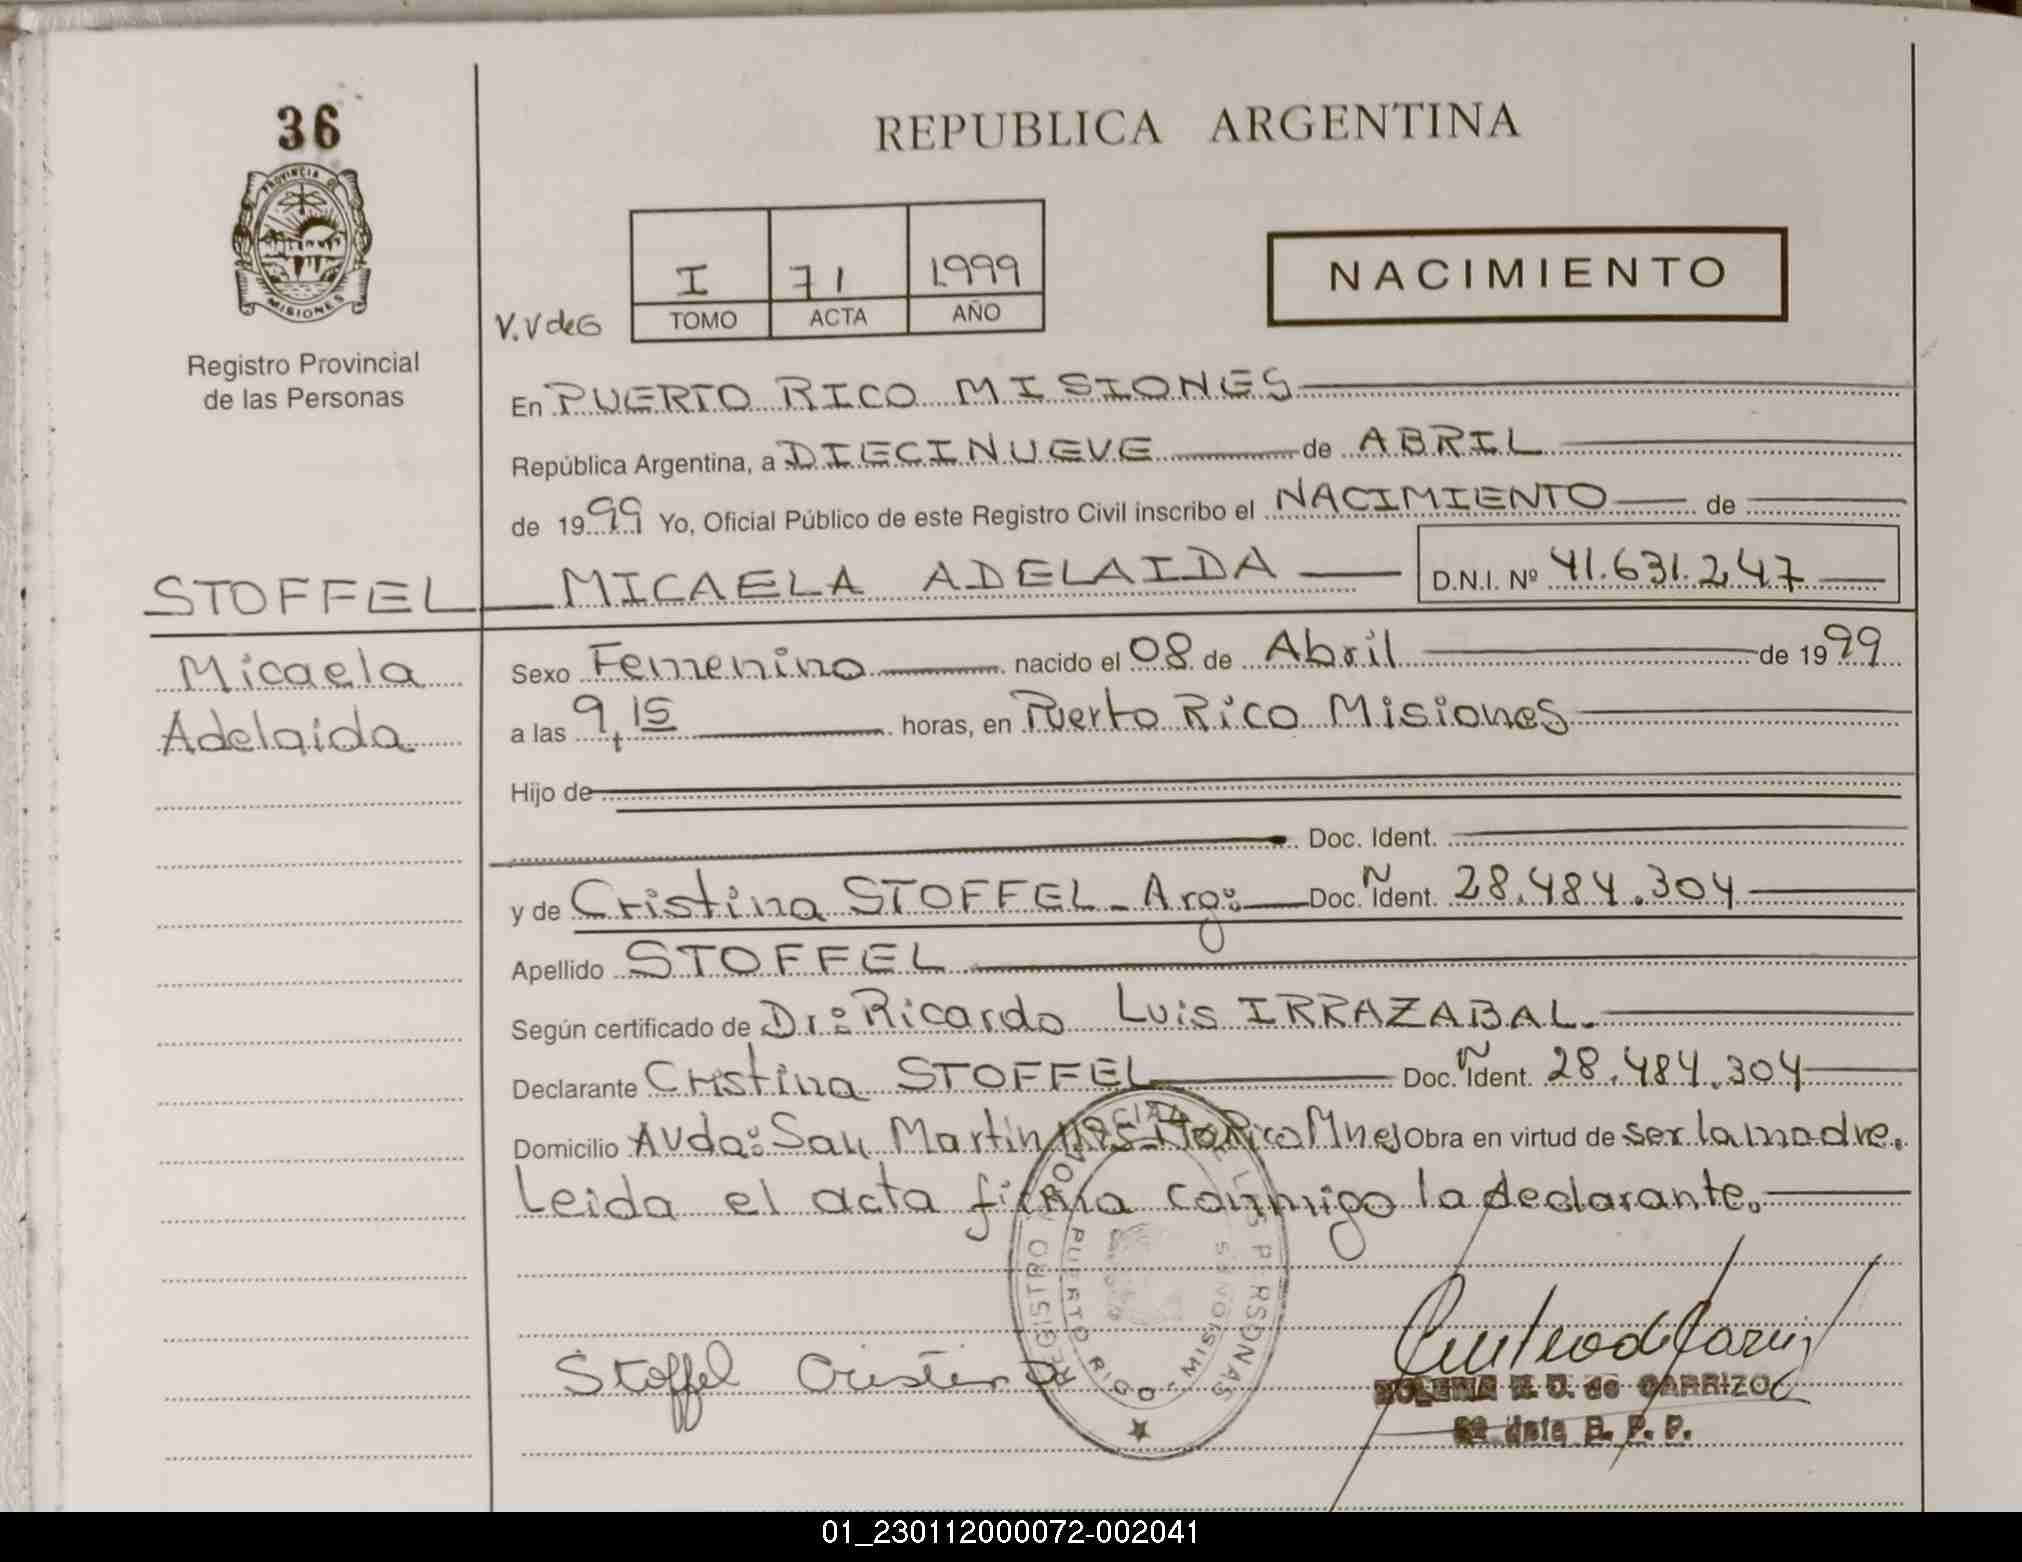 36
PROVINCIA DE
MISIONES
Registro Provincial
de las Personas
REPUBLICA ARGENTINA
I 71 1999
TOMO ACTA AÑO
V.VdeG
NACIMIENTO
En PUERTO RICO MISIONES
República Argentina, a DIECINUEVE de ABRIL
de 1999 Yo, Oficial Público de este Registro Civil inscribo el NACIMIENTO de
STOFFEL MICAELA ADELAIDA D.N.I. Nº 41.631.247
Micaela
Adelaida
Sexo Femenino nacido el 08 de Abril de 1999
a las 9,15 horas, en Puerto Rico Misiones
Hijo de
Doc. Ident.
y de Cristina STOFFEL - Arg: Doc. Ñ Ident. 28.484.304
Apellido STOFFEL
Según certificado de Dr: Ricardo Luis IRRAZABAL.
Declarante Cristina STOFFEL Doc. Ñ Ident. 28.484.304
Domicilio Avda: San Martin Rico Mnes Obra en virtud de ser la madre.
Leida el acta firma conmigo la declarante.
REGISTRO PROVINCIAL DE LAS PERSONAS
PUERTO RICO - MISIONES
Stoffel Cristina
de CARRIZO
R. P. P.
01_230112000072-002041